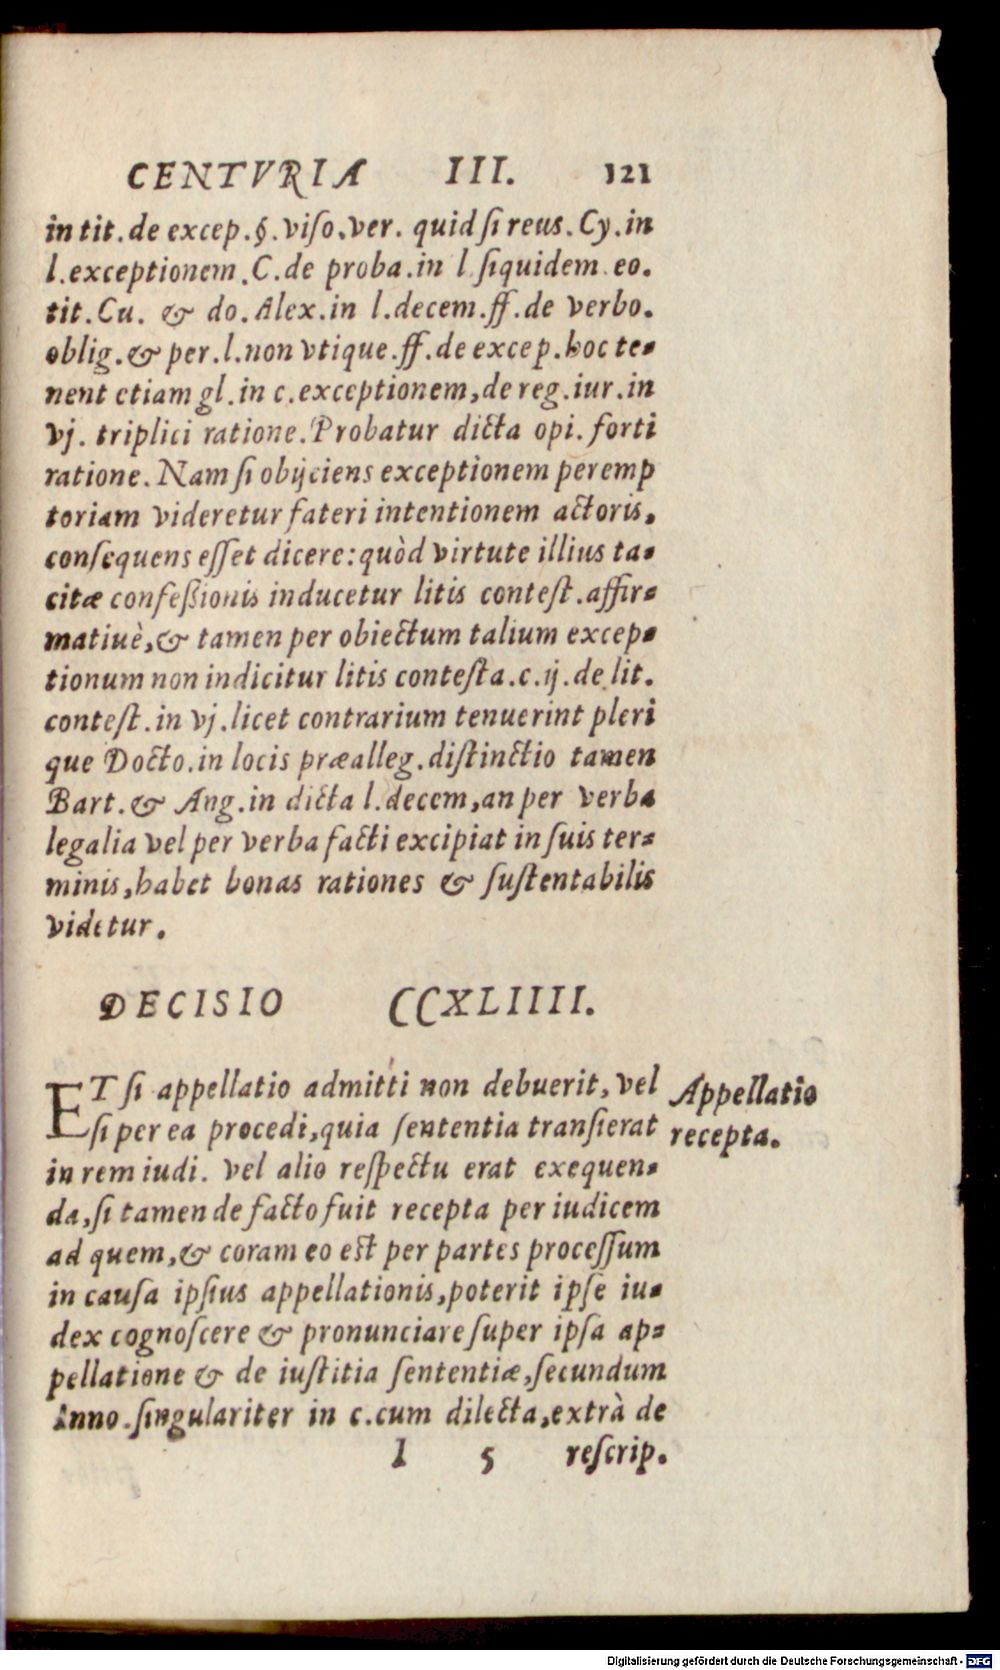 CENTVRIA III. 121
in tit. de excep. §. viſo. ver. quid ſi reus. Cy. in
l. exceptionem. C. de proba. in l. ſiquidem eo.
tit. Cu. & do. Alex. in l. decem. ff. de verbo.
oblig. & per. l. non vtique. ff. de excep. hoc te-
nent etiam gl. in c. exceptionem, de reg. iur. in
vj. triplici ratione. Probatur dicta opi. forti
ratione. Nam ſi obijciens exceptionem peremp
toriam videretur fateri intentionem actoris,
conſequens eſſet dicere: quòd virtute illius ta-
citæ confeßionis inducetur litis conteſt. affir-
matiuè, & tamen per obiectum talium excep-
tionum non indicitur litis conteſta. c. ij. de lit.
conteſt. in vj. licet contrarium tenuerint pleri
que Docto. in locis præalleg. diſtinctio tamen
Bart. & Ang. in dicta l. decem, an per verba
legalia vel per verba facti excipiat in ſuis ter-
minis, habet bonas rationes & ſuſtentabilis
videtur.
DECISIO CCXLIIII.
ET ſi appellatio admitti non debuerit, vel
ſi per ea procedi, quia ſententia tranſierat
in rem iudi. vel alio reſpectu erat exequen-
da, ſi tamen de facto fuit recepta per iudicem
ad quem, & coram eo eſt per partes proceſſum
in cauſa ipſius appellationis, poterit ipſe iu-
dex cognoſcere & pronunciare ſuper ipſa ap-
pellatione & de iuſtitia ſententiæ, ſecundum
Inno. ſingulariter in c. cum dilecta, extrà de
l 5 reſcrip.
Appellatio
recepta.
Digitalisierung gefördert durch die Deutsche Forschungsgemeinschaft - DFG